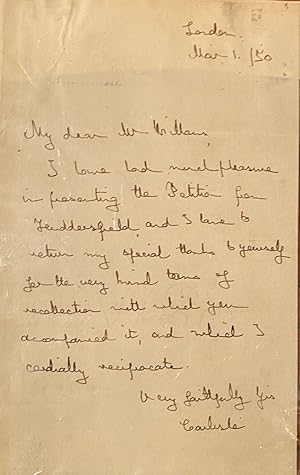 London
Mar 1. /50
My dear Mr Willans,
I have had much pleasure
in presenting the Petition from
Huddersfield, and I have to
return my special thanks to yourself
for the very kind terms of
recollection with which you
accompanied it, and which I
cordially reciprocate.
Very faithfully Yrs
Carlisle